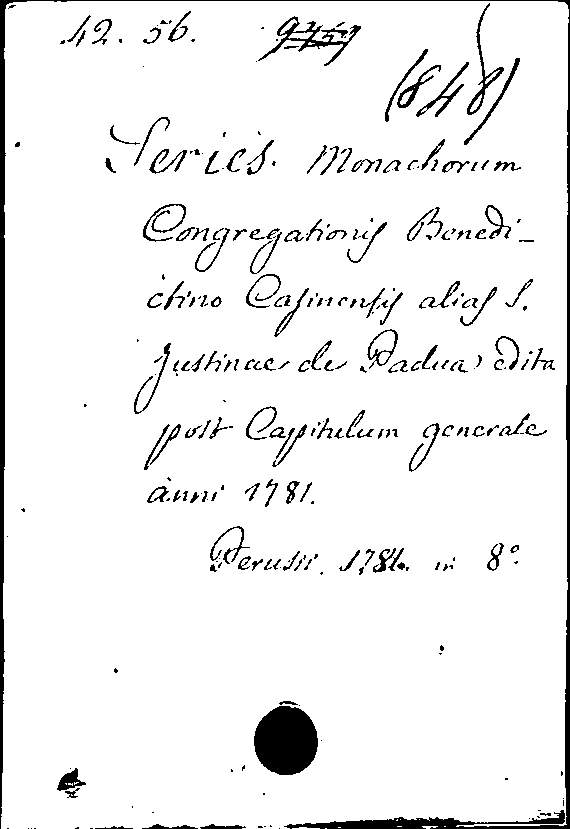 42. 56.
(848)
Series. Monachorum
Congregationis Benedi-
ctino Casinensis alias S.
Justinae de Padua, edita
post Capitulum generale
anni 1781.
Perusii. 1781. in 8°.